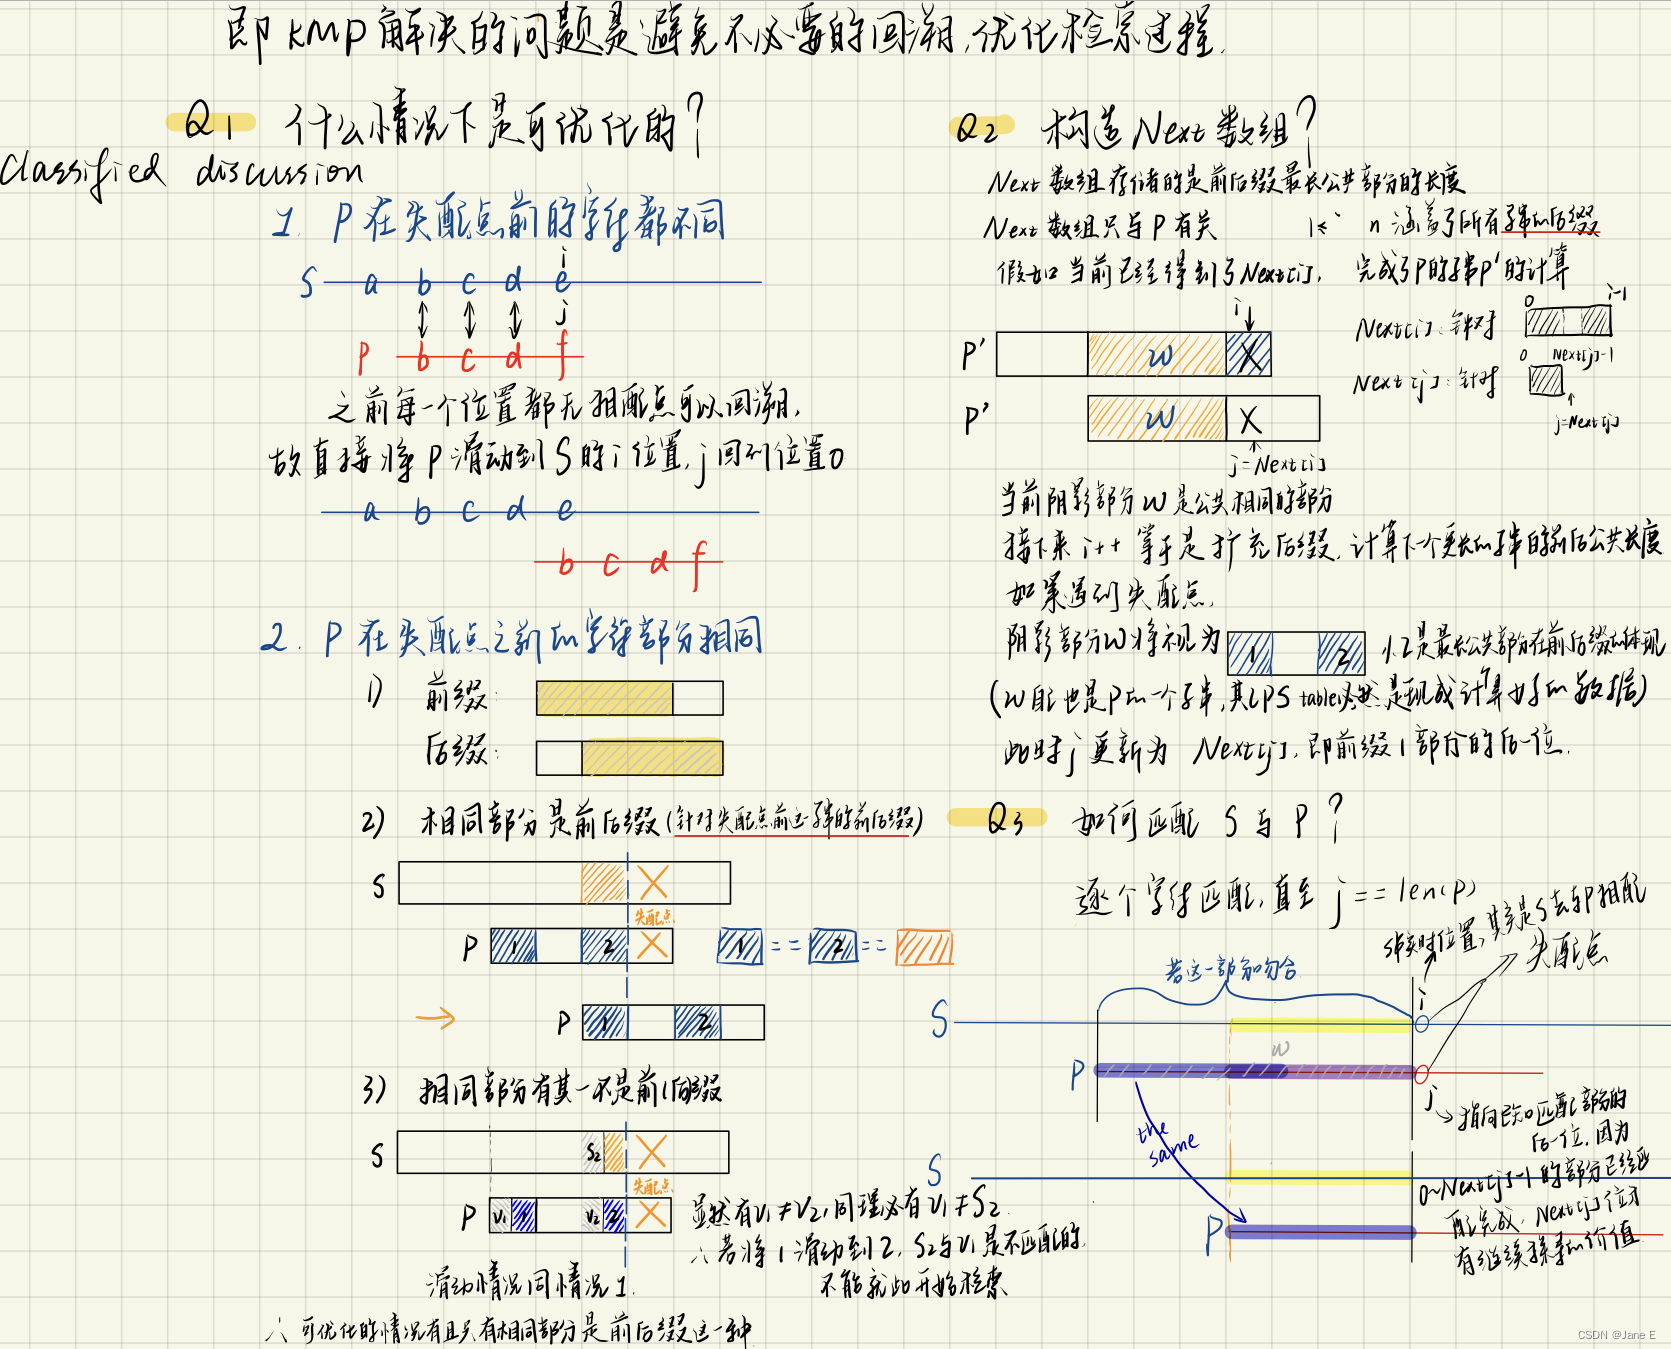 即 KMP 解决的问题是避免不必要的回溯,优化检索过程.
Q1 什么情况下是可优化的?
Classified discussion
1. P 在失配点前的字符都不同
i
S a b c d e
j
P b c d f
之前每一个位置都无相配点可以回溯,
故直接将 P 滑动到 S 的 i 位置, j 回到位置0
a b c d e
b c d f
2. P 在失配点之前的字符部分相同
1) 前缀:
后缀:
2) 相同部分是前后缀 (针对失配点前这一子串的前后缀)
S
失配点
P 1 2 1 == 2 ==
→ P 1 2
3) 相同部分有其一不是前/后缀
S S2
失配点
P V1 1 V2 2
显然有V1≠V2,同理必有V1≠S2
∴若将 1 滑动到 2, S2与V1是不匹配的,
不能就此开始检索
滑动情况同情况1.
∴ 可优化的情况有且只有相同部分是前后缀这一种
Q2 构造 Next 数组?
Next 数组存储的是前后缀最长公共部分的长度
Next 数组只与 P 有关
n 涵盖了所有子串的后缀
假如当前已经得到了Next[i], 完成了P的子串P'的计算
i
P' W X
P' W X
j=Next[i]
Next[i]: 针对
0 i-1
Next[j]: 针对
0 Next[j]-1
j=Next[j]
当前阴影部分 W 是公共相同的部分
接下来 i++ 等于是扩充后缀, 计算下一个更长的子串的前后公共长度
如果遇到失配点,
阴影部分W将视为 1 2 1.2是最长公共部分在前后缀的体现
(W自己也是P的一个子串,其LPS table必然是现成计算好的数据)
此时 j 更新为 Next[j], 即前缀 1 部分的后一位.
Q3 如何匹配 S 与 P ?
逐个字符匹配,直至 j == len(P)
失配点
若这一部分吻合
i
S
W
P
j
指向已知匹配部分的
后一位,因为
0~Next[j]-1 的部分已经匹
配完成, Next[j] 位才
有继续探寻的价值
the
same
S
P
CSDN @Jane E